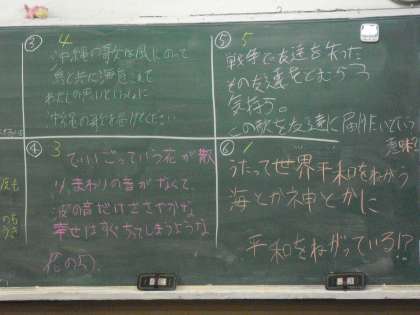 ③ 4
沖縄の歌は風にのって
鳥と共に海をこえて
わたしの思いといっしょに
沖縄の歌を届けてください
⑤ 5
戦争で友達を失った
その友達をとむらう
気持ち。
この歌を友達に届けたいっていう
意味!
④ 3
でいごっていう花が散
り、まわりの音がなくて、
波の音だけささやかな
幸せはすぐちってしまうような
花のよう。
⑥ 1
うたって世界平和をねがう
海とか神とかに
平和をねがっている!?